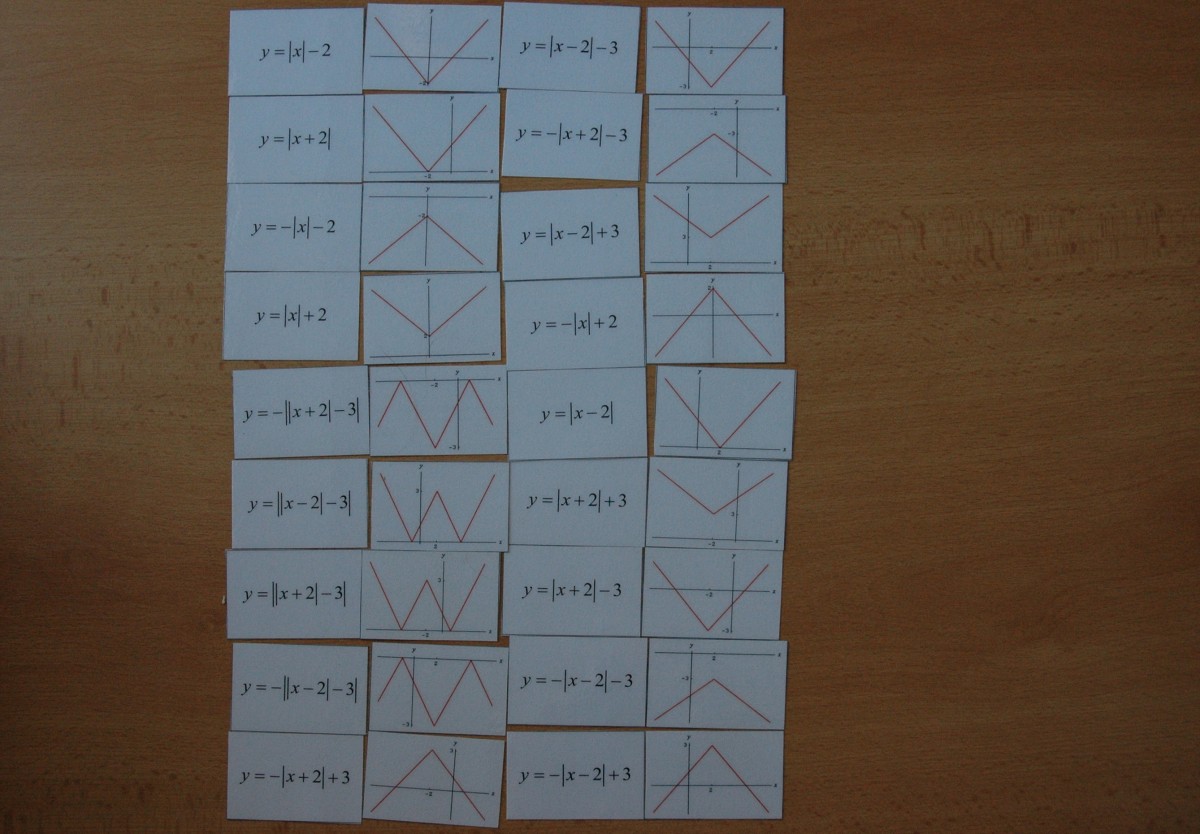 y = |x| − 2
y
x
−2
y = |x − 2| − 3
y
x
2
−3
y = |x + 2|
y
x
−2
y = −|x + 2| − 3
y
x
−2
−3
y = −|x| − 2
y
x
−2
y = |x − 2| + 3
y
3
x
2
y = |x| + 2
y
2
x
y = −|x| + 2
y
2
x
y = −||x + 2| − 3|
y
x
−2
−3
y = |x − 2|
y
x
2
y = ||x − 2| − 3|
y
3
x
2
y = |x + 2| + 3
y
3
x
−2
y = ||x + 2| − 3|
y
3
x
−2
y = |x + 2| − 3
y
x
−2
−3
y = −||x − 2| − 3|
y
x
2
−3
y = −|x − 2| − 3
y
x
2
−3
y = −|x + 2| + 3
y
3
x
−2
y = −|x − 2| + 3
y
3
x
2